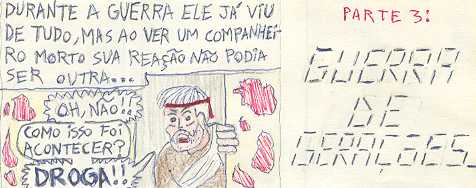 DURANTE A GUERRA ELE JÁ VIU
DE TUDO, MAS AO VER UM COMPANHEI-
RO MORTO SUA REAÇÃO NÃO PODIA
SER OUTRA...
OH, NÃO!!
COMO ISSO FOI
ACONTECER?
DROGA!!
PARTE 3:
GUERRA
DE
GERAÇÕES